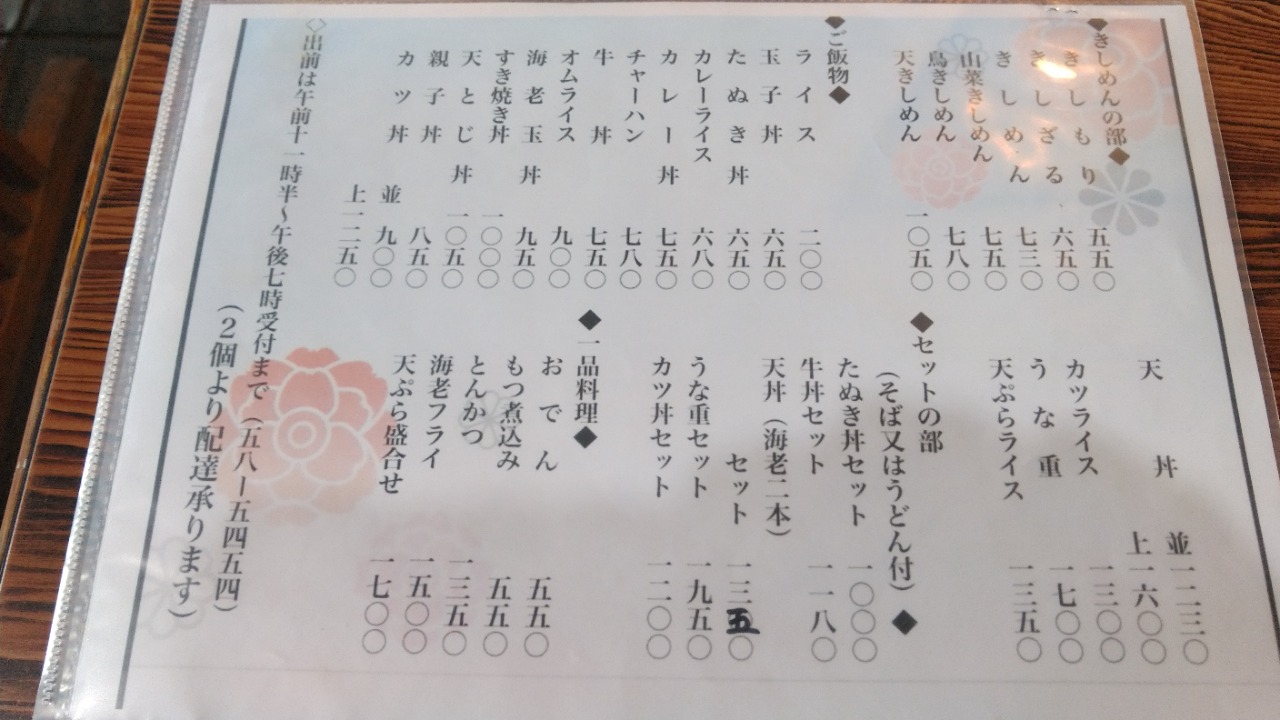 ◆きしめんの部◆
きしもり 五五〇
きしざる 六五〇
きしめん 七三〇
山菜きしめん 七五〇
鳥きしめん 七八〇
天きしめん 一〇五〇
◆ご飯物◆
ライス 二〇〇
玉子丼 六五〇
たぬき丼 六五〇
カレーライス 六八〇
カレー丼 七五〇
チャーハン 七八〇
牛丼 七五〇
オムライス 九〇〇
海老玉丼 九五〇
すき焼き丼 一〇〇〇
天とじ丼 一〇五〇
親子丼 八五〇
カツ丼 並 九〇〇
上 一二五〇
天丼 並 一二三〇
上 一六〇〇
カツライス 一三〇〇
うな重 一七〇〇
天ぷらライス 一三五〇
◆セットの部
(そば又はうどん付)◆
たぬき丼セット 一〇〇〇
牛丼セット 一一八〇
天丼(海老二本)
セット 一三五〇
うな重セット 一九五〇
カツ丼セット 一二〇〇
◆一品料理◆
おでん 五五〇
もつ煮込み 五五〇
とんかつ 一三五〇
海老フライ 一五〇〇
天ぷら盛合せ 一七〇〇
◇出前は午前十一時半~午後七時受付まで(五八ー五四五四)
(2個より配達承ります)